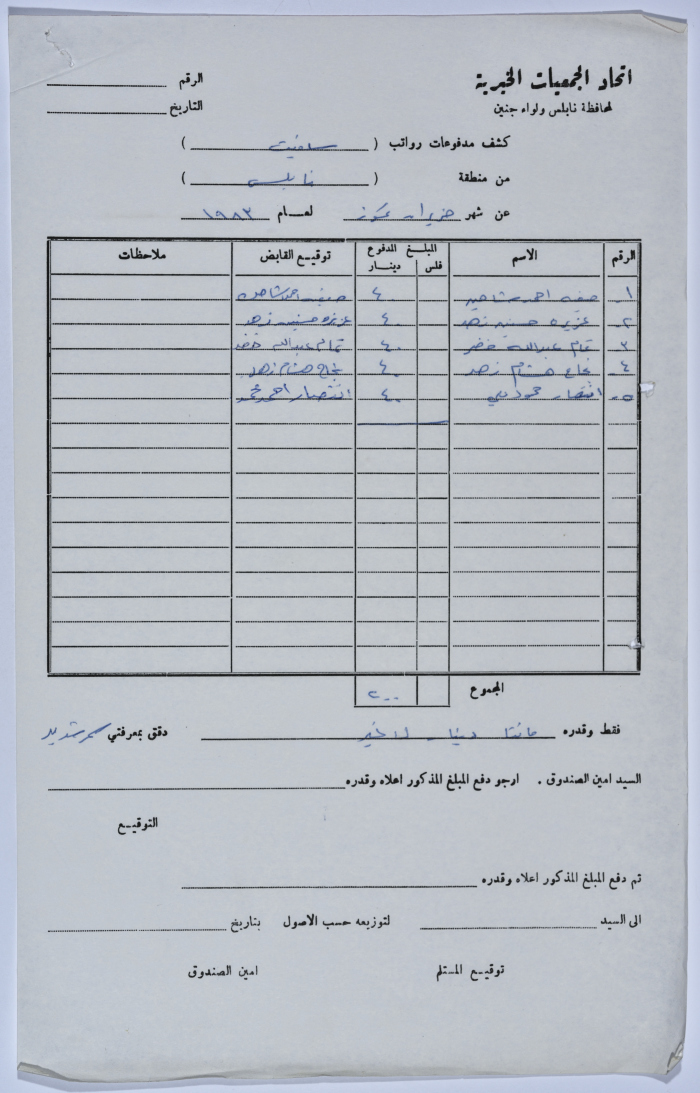 اتحاد الجمعيات الخيرية
لمحافظة نابلس ولواء جنين
الرقم
التاريخ
كشف مدفوعات رواتب ( سلفيت )
من منطقة ( نابلس )
عن شهر حزيران تموز لعـــام ١٩٨٣
الرقم الاسم المبلــغ المدفوع توقيـع القابض ملاحظات
فلس دينـــار
١- صفيه احمد شاهين ٤٠ صفيه احمد شاهين
٢- عزيزه حسين زهد ٤٠ عزيزه حسين زهد
٣- تمام عبدالله خضر ٤٠ تمام عبدالله خضر
٤- نجاح هشام زهد ٤٠ نجاح هشام زهد
٥- انتصار محمود ٤٠ انتصار احمد
المجموع ٢٠٠
فقط وقدره مائتا دينار لا غير دقق بمعرفتي
السيد امين الصندوق . ارجو دفع المبلغ المذكور اعلاه وقدره
التوقيـع
تم دفع المبلغ المذكور اعلاه وقدره
الى السيد لتوزيعه حسب الاصول بتاريخ
توقيـع المستلم امين الصندوق